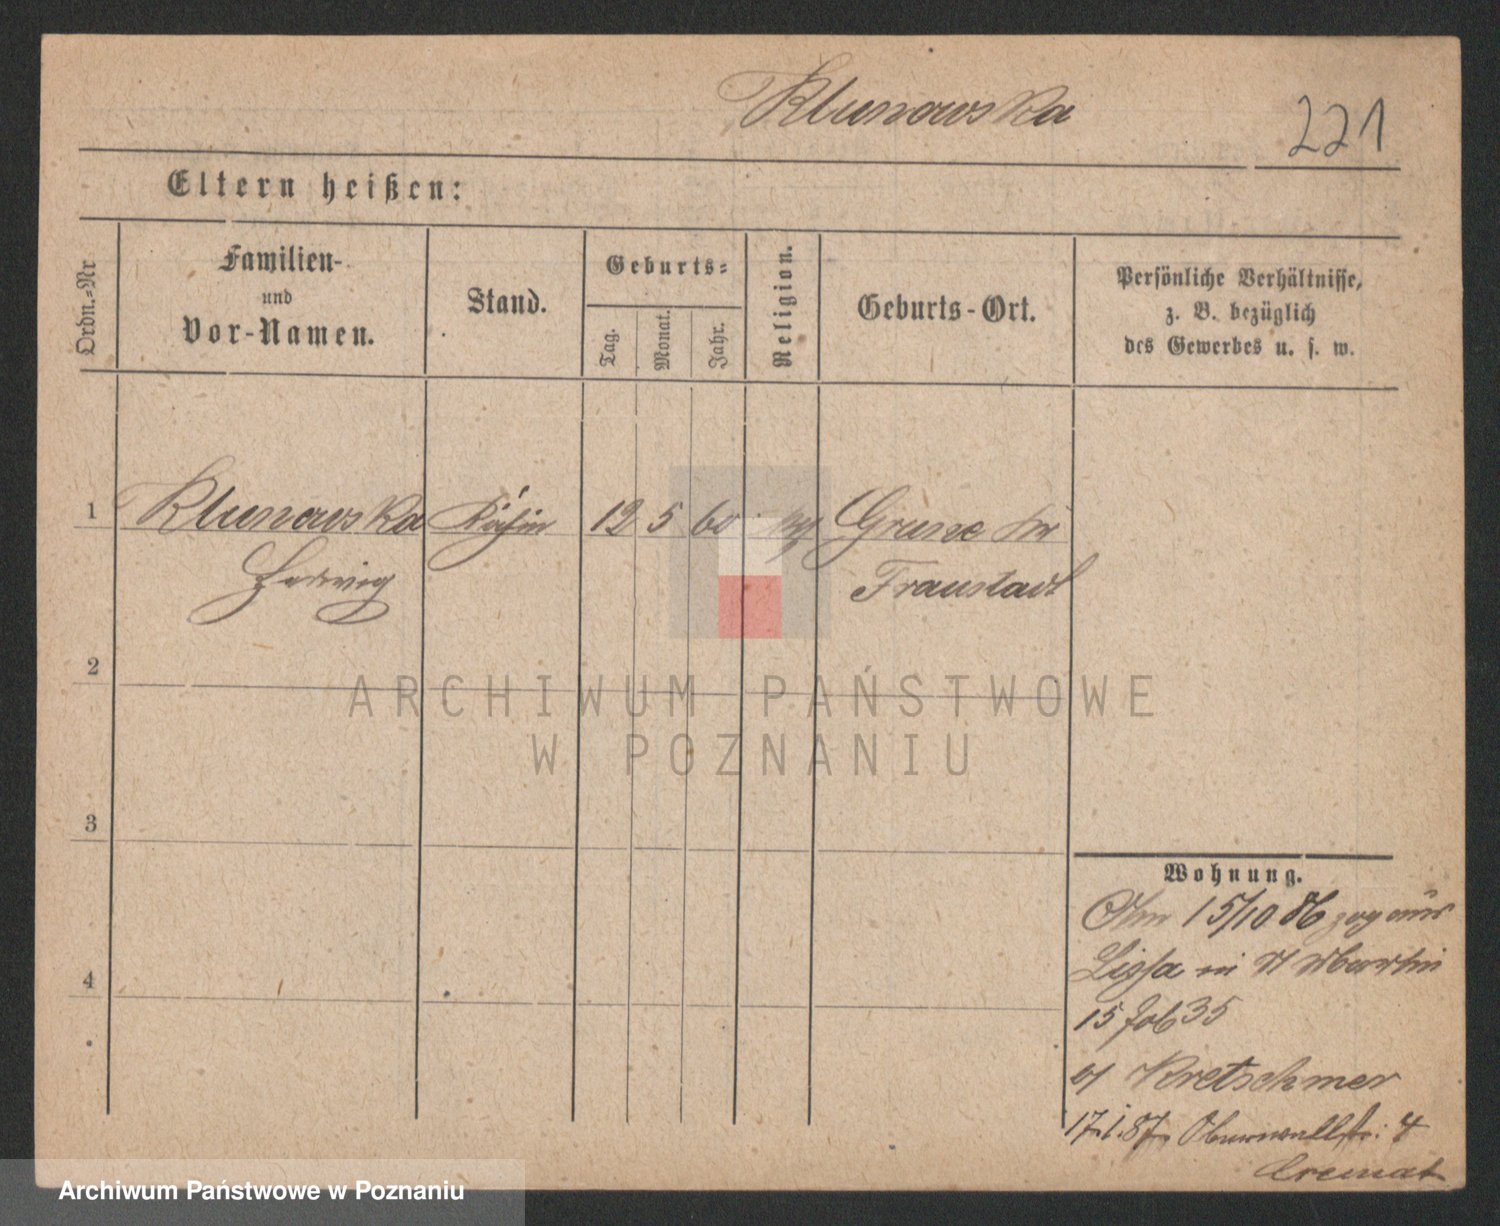 Klunowska
221
Eltern heißen:
Ordn.-Nr
Familien-
und
Vor-Namen.
Stand.
Geburts-
Tag.
Monat.
Jahr.
Religion.
Geburts-Ort.
Persönliche Verhältnisse,
z. B. bezüglich
des Gewerbes u. s. w.
1 Klunowska Köchin 12 5 60 Grune Kr
Hedwig Fraustadt
2
ARCHIWUM PAŃSTWOWE
W POZNANIU
3
Wohnung.
15/10 86 zog aus
Lissa in St Martin
4
15 35
b/ Kretschmer
17.1.87. 4
Cremat
Archiwum Państwowe w Poznaniu